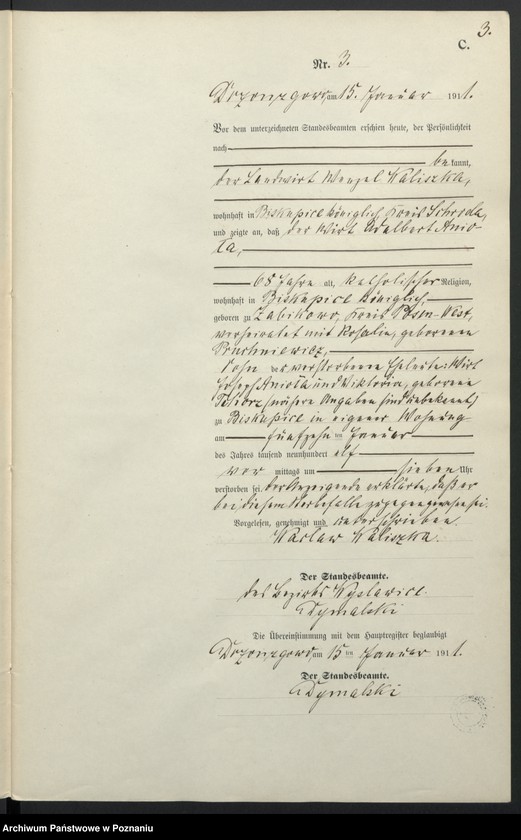 3.
C.
Nr. 3.
am 15. Januar 1911.
Vor dem unterzeichneten Standesbeamten erschien heute, der Persönlichkeit
nach
bekannt,
der Landwirt Wenzel Kaliszka,
wohnhaft in Biskupice königlich, Kreis Schroda,
und zeigte an, daß der Wirt Adalbert Anio-
la,
65 Jahre alt, katholischer Religion,
wohnhaft in Biskupice königlich,
geboren zu Zabikowo, Kreis Posen-West,
verheiratet mit Rosalie, geborenen
Sohn der verstorbenen Eheleute: Wirt
Josef Aniola und Viktoria, geborene
(nähere Angaben sind unbekannt)
zu Biskupice in eigener Wohnung
am fünfzehnten Januar
des Jahres tausend neunhundert elf
vor mittags um sieben Uhr
verstorben sei. Der Anzeigende erklärte, daß er
bei diesem Sterbefalle zugegen gewesen sei.
Vorgelesen, genehmigt und unterschrieben.
Wacław Kaliszka.
Der Standesbeamte.
des Bezirks
Dymalski
Die Übereinstimmung mit dem Hauptregister beglaubigt
am 15ten Januar 1911.
Der Standesbeamte.
Dymalski
Archiwum Państwowe w Poznaniu